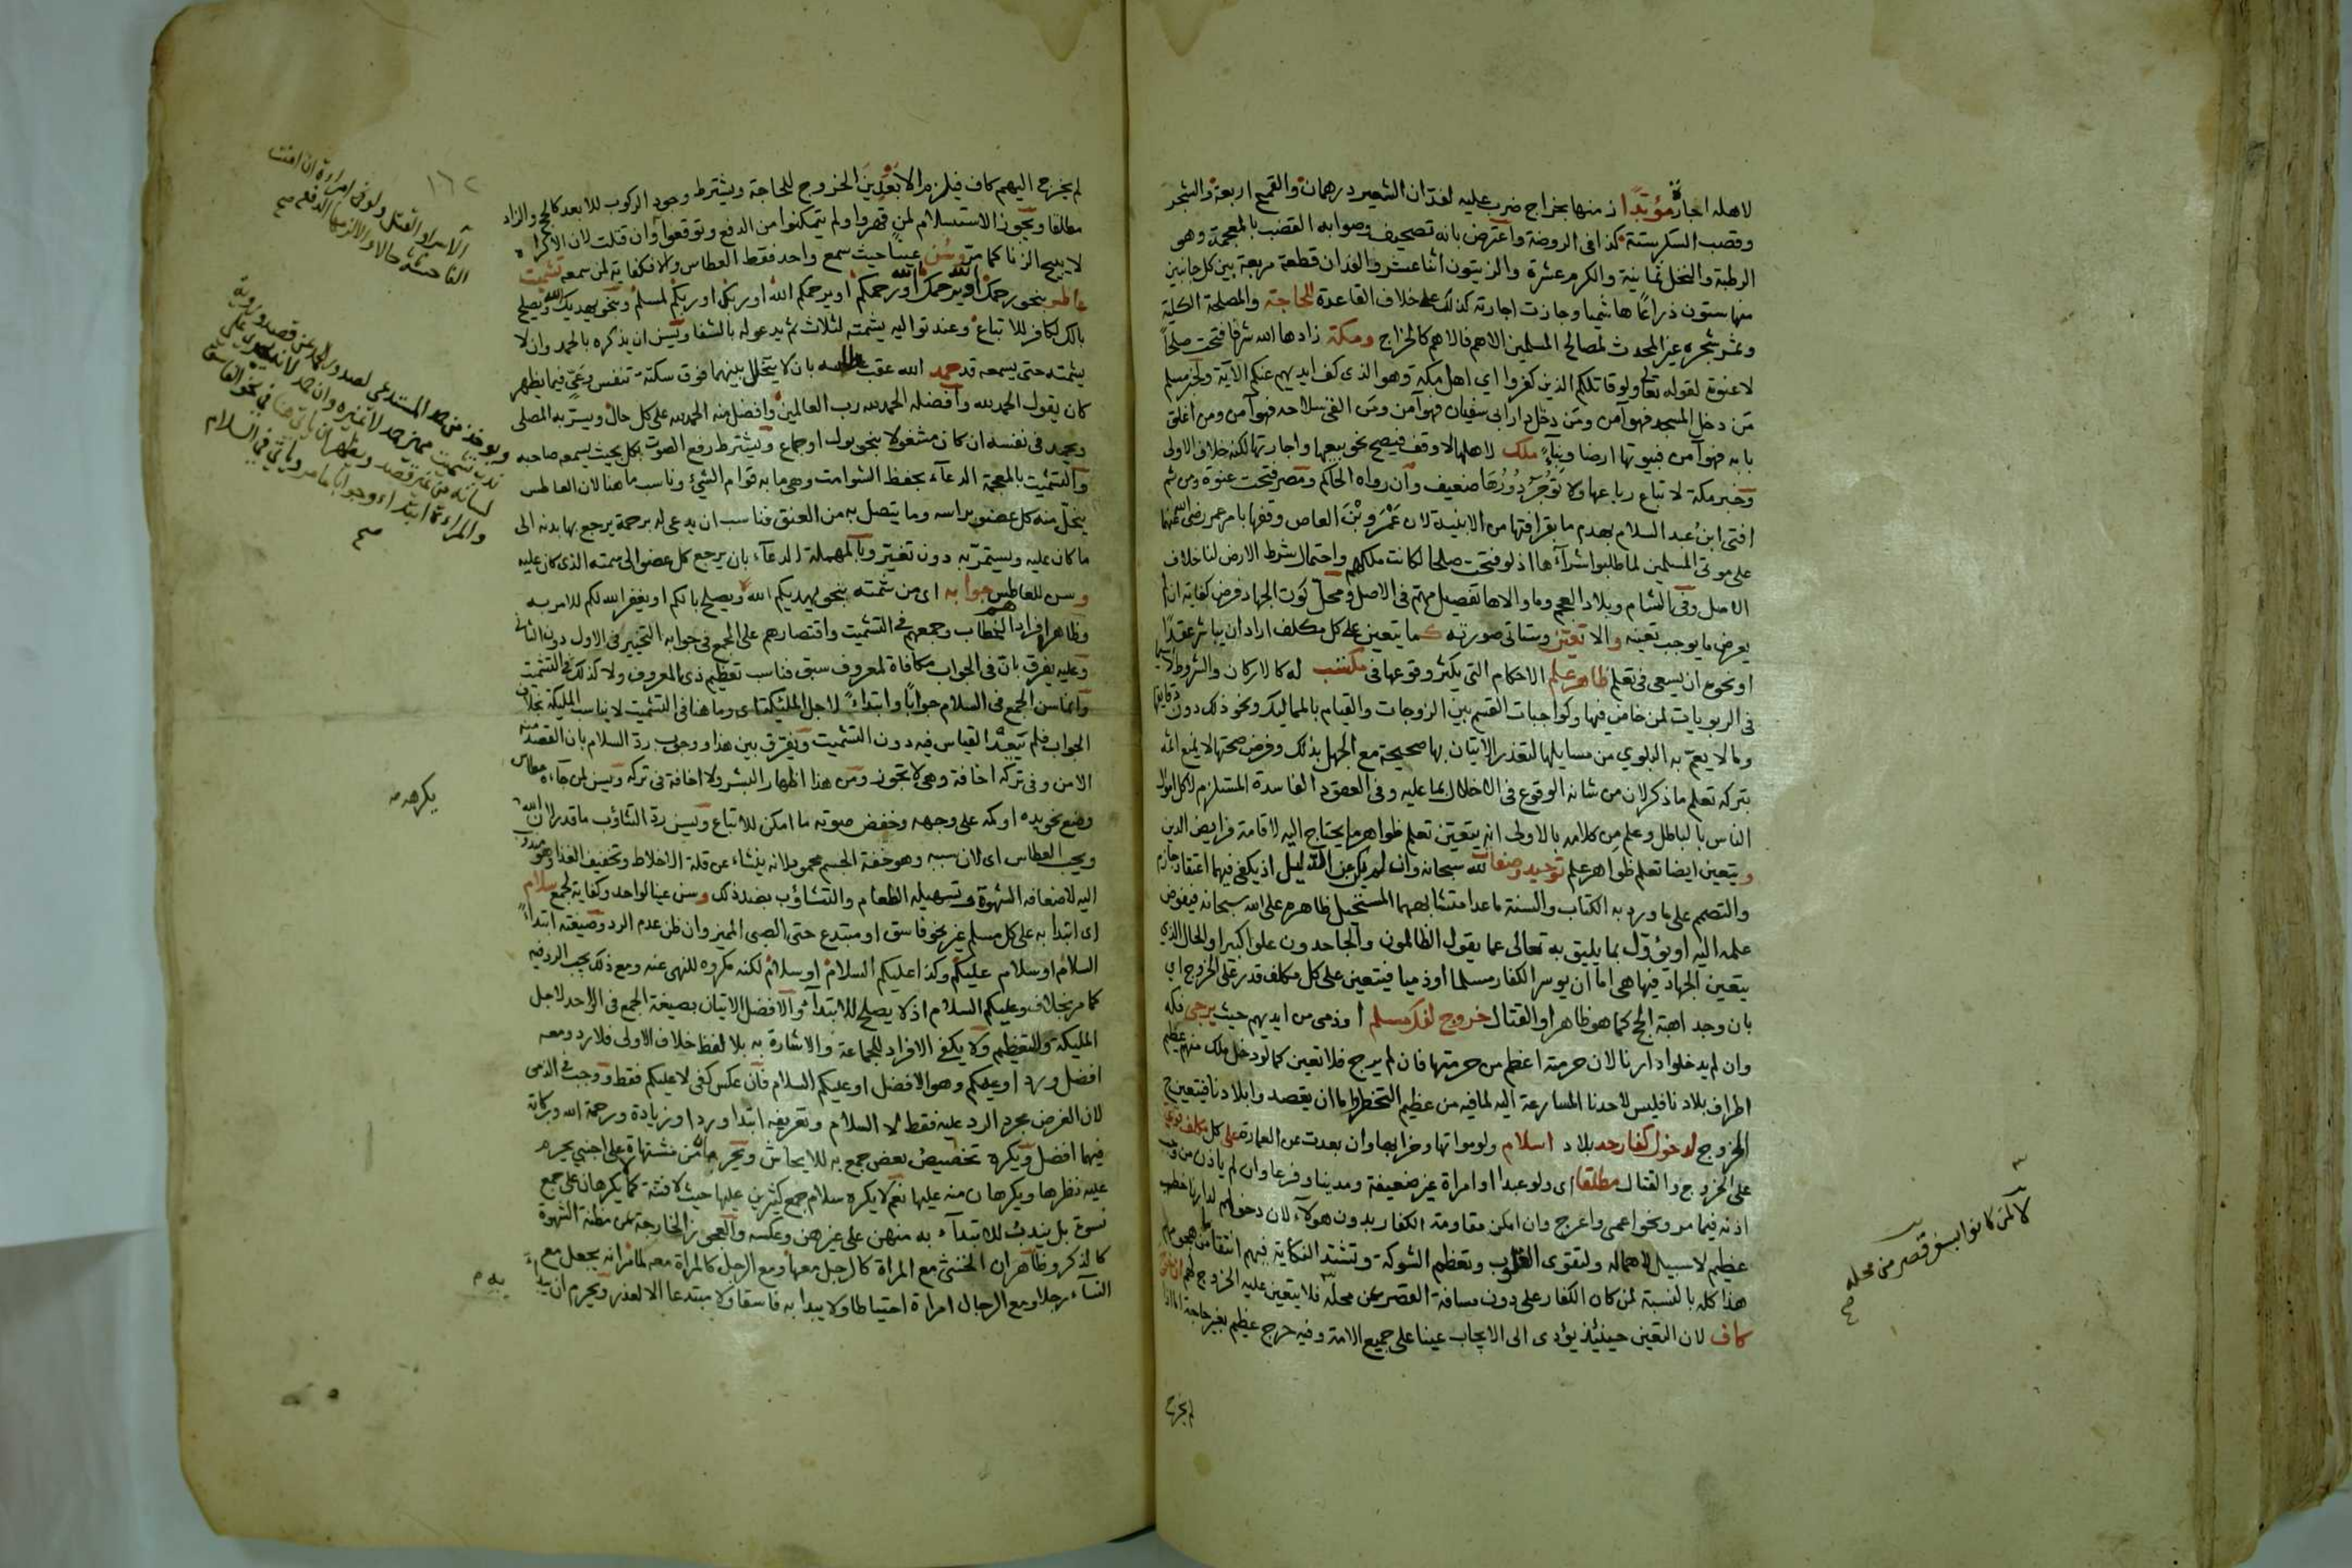 لاهله اجارة مؤبدا منها بخراج ضرب عليه لفدان الشعير درهمان والقمح اربعة والشجر
وقصب السكر ستة كذا فى الروضة واعترض بانه تصحيف وصوابه القضب بالمعجمة وهى
الرطبة والنخل ثمانية والكرم عشرة والزيتون اثنا عشر والفدان قطعة مربعة بين كل جانبين
منها ستون ذراعا هاشميا وجازت اجارته كذلك على خلاف القاعدة للحاجة والمصلحة الكلية
وثمر شجره غير المحدث لمصالح المسلمين الاهم فالاهم كالخراج ومكة زادها الله شرفا فتحت صلحا
لا عنوة لقوله تعالى ولو قاتلكم الذين كفروا اى اهل مكة وهو الذى كف ايديهم عنكم الآية ولخبر مسلم
من دخل المسجد فهو آمن ومن دخل دار ابى سفيان فهو آمن ومن القى سلاحه فهو آمن ومن اغلق
بابه فهو آمن فبيوتها ارضا وبناء ملك لاهلها الا وقف فيصح نحو بيعها واجارتها لكنه خلاف الاولى
وخبر مكة لا تباع رباعها ولا تؤجر دورها ضعيف وان رواه الحاكم ومصر فتحت عنوة ومن ثم
افتى ابن عبد السلام بهدم ما بقرافتها من الابنية لان عمرو بن العاص وقفها بامر عمر رضى الله عنهما
على موتى المسلمين لما طلبوا شرآءها اذ لو فتحت صلحا لكانت ملكهم واحتمال شرط الارض لنا خلاف
الاصل وفى الشام وبلاد العجم وما والاها تفصيل مهم فى الاصل ومحل كون الجهاد فرض كفاية ان لم
يعرض ما يوجب تعينه والا تعين وستاتى صورته كما يتعين على كل مكلف اراد ان يباشر عقدا
او نحوه ان يسعى فى تعلم ظاهر علم الاحكام التى يكثر وقوعها فى مكتسب له كالاركان والشروط لا سيما
فى الربويات لمن خاض فيها وكواجبات القسم بين الزوجات والقيام بالمماليك ونحو ذلك دون دقايقها
وما لا يعم به البلوى من مسايلها لتعذر الاتيان بها صحيحة مع الجهل بذلك وفرض صحتها لا يمنع اثمه
بتركه تعلم ما ذكر لان من شانه الوقوع فى الاخلال بما عليه وفى العقود الفاسدة المستلزم لاكل اموال
الناس بالباطل وعلم من كلامه بالاولى انه يتعين تعلم ظواهر ما يحتاج اليه لاقامة فرايض الدين
ويتعين ايضا تعلم ظواهر علم توحيد وصفات لله سبحانه وان لم يكن عن الدليل اذ يكفى فيهما اعتقاد جازم
والتصمم على ما ورد به الكتاب والسنة ما عدا متشابههما المستحيل ظاهره على الله سبحانه فيفوض
علمه اليه او يؤول بما يليق به تعالى عما يقول الظالمون والجاحدون علوا كبيرا والحال الذى
يتعين الجهاد فيها هى اما ان يوسر الكفار مسلما او ذميا فيتعين على كل مكلف قدر على الخروج اى
بان وجد اهبة الحج كما هو ظاهر او القتال خروج لفك مسلم او ذمى من ايديهم حيث يرجى فكه
وان لم يدخلوا دارنا لان حرمته اعظم من حرمتها فان لم يرج فلا تعين كما لو دخل ملك منهم عظيم
اطراف بلادنا فليس لاحدنا المسارعة اليه لما فيه من عظيم التخطر واما ان يقصدوا بلادنا فيتعين ح
الخروج لدخول كفار حد بلاد اسلام ولو مواتها وخرابها وان بعدت عن العمارة على كل مكلف قوى
على الخروج والقتال مطلقا اى ولو عبدا او امراة غير ضعيفة ومدينا وفرعا وان لم ياذن من وجب
اذنه فيما مر ونحو اعمى واعرج وان امكن مقاومة الكفار بدون هولآء لان دخولهم لدارنا خطب
عظيم لا سبيل لاهماله ولتقوى القلوب وتعظم الشوكة وتشتد النكاية فيهم انتقاما من هجومهم
هذا كله بالنسبة لمن كان الكفار على دون مسافة القصر من محله فلا يتعين عليه الخروج لهم ان خرج
كاف لان التعين حينئذ يؤدى الى الايجاب عينا على جميع الامة وفيه حرج عظيم بغير حاجة اما اذا
لم يخرج
لا لمن كانوا بسفر قصر من محله
صح
لم يخرج اليهم كاف فيلزم الابعدين الخروج للحاجة ويشترط وجود الركوب للابعد كالحج والزاد
مطلقا ويجوز الاستسلام لمن قهروا ولم يتمكنوا من الدفع وتوقعوا وان قتلت لان الاكراه
لا يبيح الزنا كما مر وسن عينا حيث سمع واحد فقط العطاس والا فكفاية لمن سمعه تشميت
عاطس بنحو رحمك الله او يرحمك الله او رحمكم او يرحمكم الله او ربك او ربكم لمسلم ونحو يهديك الله ويصلح
بالك لكافر للاتباع وعند تواليه يشمته لثلاث ثم يدعو له بالشفا ويسن ان يذكره بالحمد وان لا
يشمته حتى يسمعه قد حمد الله عقب عطاسه بان لا يتخلل بينهما فوق سكتة تنفس وعى فيما يظهر
كان يقول الحمد لله وافضله الحمد لله رب العالمين وافضل منه الحمد لله على كل حال ويسر به المصلى
ويحمد فى نفسه ان كان مشغولا بنحو بول او جماع ويشترط رفع الصوت بكل بحيث يسمعه صاحبه
والتشميت بالمعجمة الدعآء بحفظ الشوامت وهى ما به قوام الشئ وناسب ما هنا لان العاطس
ينحل منه كل عضو براسه وما يتصل به من العنق فناسب ان يدعى له برحمة يرجع بها بدنه الى
ما كان عليه ويستمر به دون تغير وبالمهملة الدعآء بان يرجع كل عضو الى سمته الذى كان عليه
وسن للعاطس جوابه اى من شمته بنحو يهديكم الله ويصلح بالكم او يغفر الله لكم للامر به
وظاهر افرادهم الخطاب وجمعهم فى التشميت واقتصارهم على الجمع فى جوابه التخيير فى الاول دون الثانى
وعليه يفرق بان فى الجواب مكافاة لمعروف سبق فناسب تعظيم ذى المعروف ولا كذلك فى التشميت
وانما سن الجمع فى السلام جوابا وابتداء لاجل المليكة اى وما هنا فى التشميت لا يناسب المليكة بخلاف
الجواب فلم يتبعد القياس فيه دون التشميت ويفرق بين هذا ووجوب رد السلام بان القصد منه
الامن وفى تركه اخافة وهى لا تجوز ومن هذا اظهار البشر ولا اخافة فى تركه ويسن لمن جاءه عطاس
وضع نحو يده او كمه على وجهه وخفض صوته ما امكن للاتباع ويسن رد التثاؤب ما قدر لان الله
ويحب العطاس اى لان سببه وهو خفة الجسم محمود لانه ينشاء عن قلة الاخلاط وتخفيف الغذا وهو مندوب
اليه لاضعافه الشهوة وتسهيله الطعام والتثاؤب بضد ذلك وسن عينا لواحد وكفاية لجمع سلام
اى ابتدا به على كل مسلم غير نحو فاسق او مبتدع حتى الصبى المميز وان ظن عدم الرد وصيغته ابتداء
السلام او سلام عليكم وكذا عليكم السلام او سلام لكنه مكروه للنهى عنه ومع ذلك يجب الرد فيه
كما مر بخلاف وعليكم السلام اذ لا يصلح للابتدآء والافضل الاتيان بصيغة الجمع فى الواحد لاجل
المليكة وللتعظيم ولا يكفى الافراد للجماعة والاشارة به بلا لفظ خلاف الاولى فلا رد ومعه
افضل ورد او عليكم وهو الافضل او عليكم السلام فان عكس كفى لا عليكم فقط ووجب فى الذمى
لان الغرض مجرد الرد عليه فقط لا السلام وتعريفه ابتدا وردا وزيادة ورحمة الله وبركاته
فيهما افضل ويكره تخصيص بعض جمع به للايحاش ويحرم من مشتهاة على اجنبى يحرم
عليه نظرها ويكرهان منه عليها نعم لا يكره سلام جمع كثيرين عليها حيث لا فتنة كما يكرهان على جمع
نسوة بل يندب للابتدآء به منهن على غيرهن وعكسه والعجوز الخارجة عن مظنة الشهوة
كالذكر وظاهر ان الخنثى مع المراة كالرجل معها ومع الرجل كالمراة معه لما مر انه يجعل مع
النسآء رجلا ومع الرجال امراة احتياطا ولا يبدا به فاسقا ولا مبتدعا الا لعذر ويحرم ان
١٦٢
الاسر او القتل ولو فى امراة ان امنت
الفاحشة حالا والا لزمها الدفع صح
لسانه من غير قصد ويظهر ان ياتى هنا فى نحو الفاسق
والمراءة ابتداء وجوابا ما مر وياتى فى السلام
صح
يكره